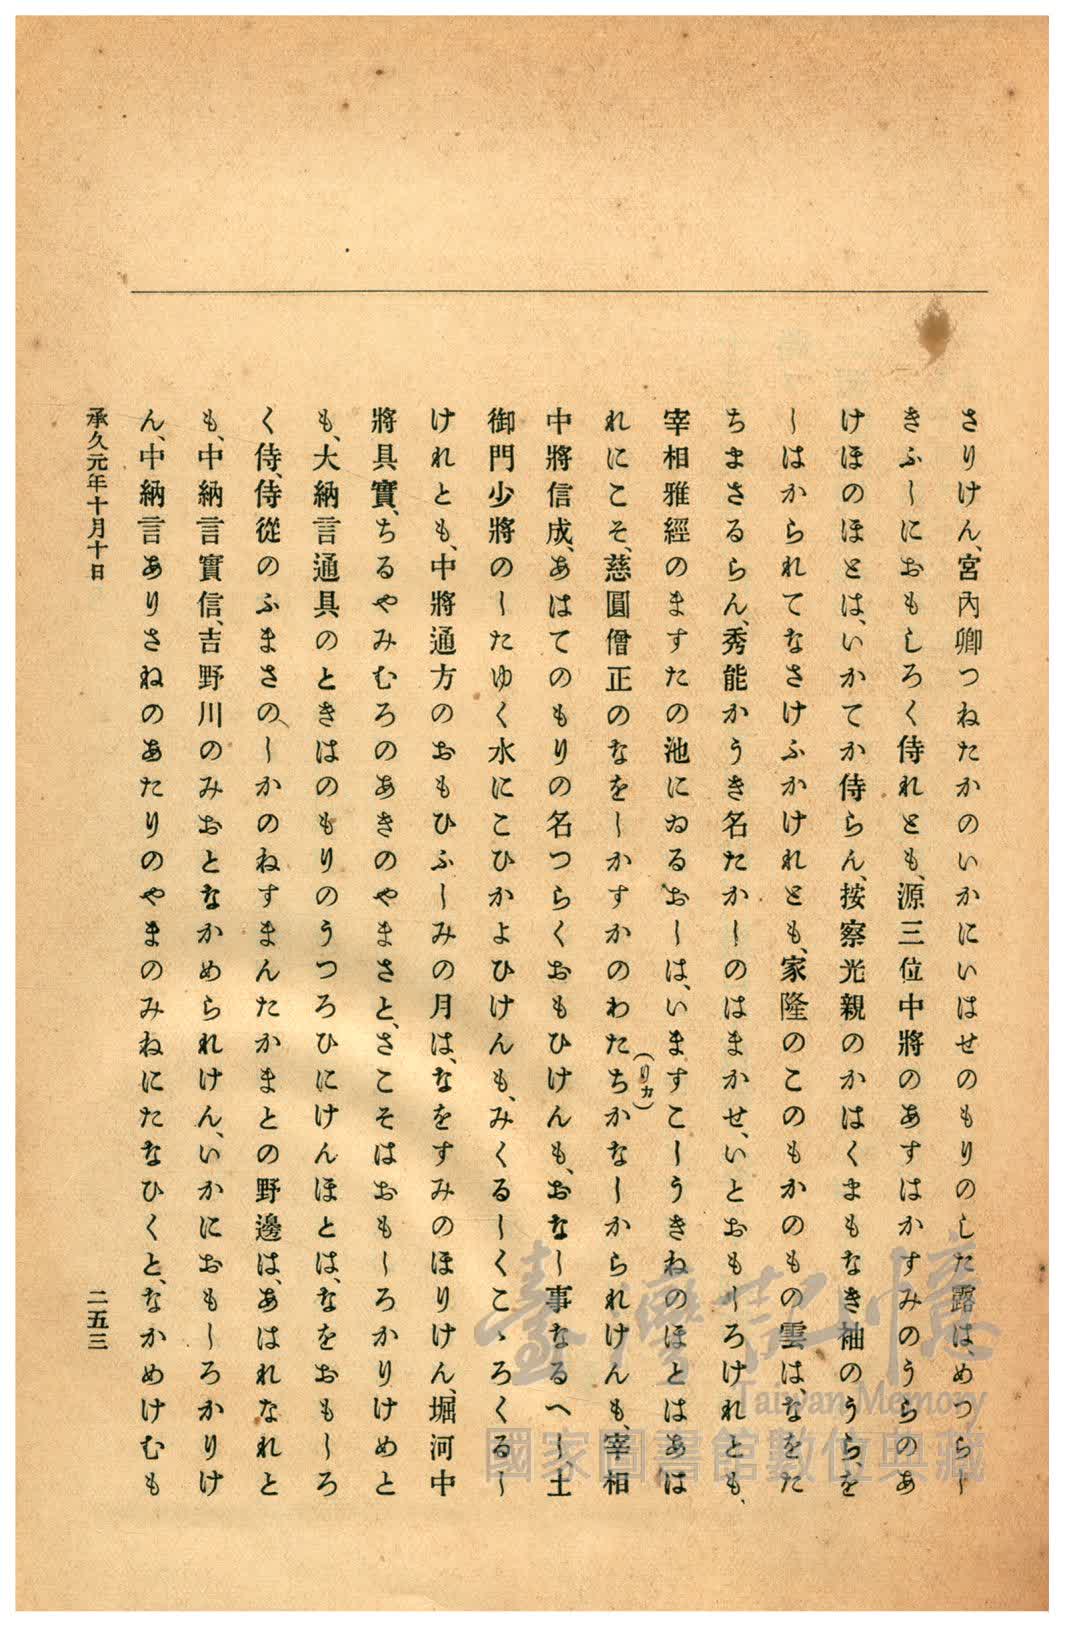 さりけん、宮內卿つねたかのいかにいはせのもりのした露は、めつらし
きふしにおもしろく侍れとも、源三位中將のあすはかすみのうらのあ
けほのゝほとは、いかてか侍らん、按察光親のかはくまもなき袖のうら、を
しはかられてなさけふかけれとも、家隆のこのもかのもの雲は、なをた
ちまさるらん、秀能かうき名たかしのはまかせ、いとおもしろけれとも、
宰相雅經のますたの池にゐるおしは、いますこしうきねのほとはあは
れにこそ、慈圓僧正のなをしかすかのわたち(りカ)かなしかられけんも、宰相
中將信成、あはてのもりの名つらくおもひけんも、おなし事なるへし、土
御門少將のしたゆく水にこひかよひけんも、みくるしくこゝろくるし
けれとも、中將通方のおもひふしみの月は、なをすみのほりけん、堀河中
將具實、ちるやみむろのあきのやまさと、さこそはおもしろかりけめと
も、大納言通具のときはのもりのうつろひにけんほとは、なをおもしろ
く侍、侍從のふまさの、しかのねすまんたかまとの野邊は、あはれなれと
も、中納言實信、吉野川のみおとなかめられけん、いかにおもしろかりけ
ん、中納言ありさねのあたりのやまのみねにたなひくと、なかめけむも
承久元年十月十日
二五三
臺灣記憶
Taiwan Memory
國家圖書館數位典藏